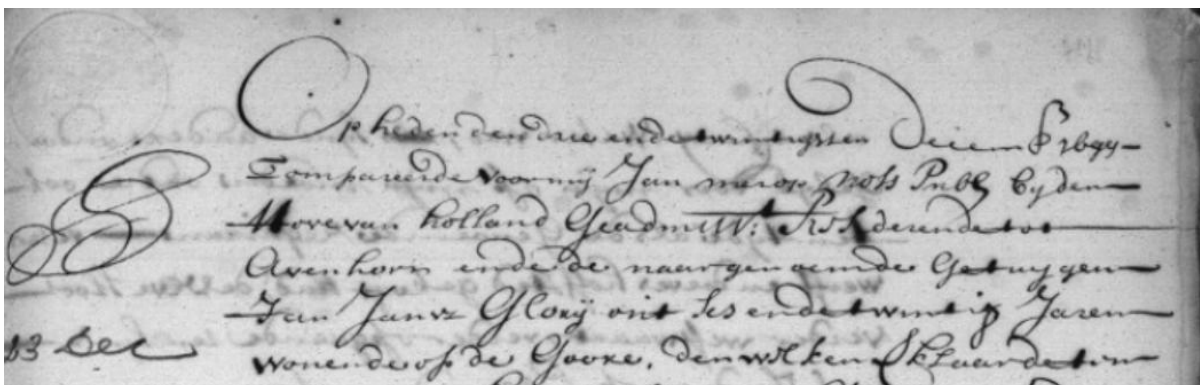 Op heden den drie ende twintigsten Decemb 1699
Compareerde voor mij Jan merop Nots Publ by den
Hove van Holland Geadmitt: Residerende tot
Avenhorn ende de naargenoemde Getuygen
Jan Jansz Glorij out ses ende twintigh Jaren
23 Dec
wonende op de Goore, den welken verklaarde